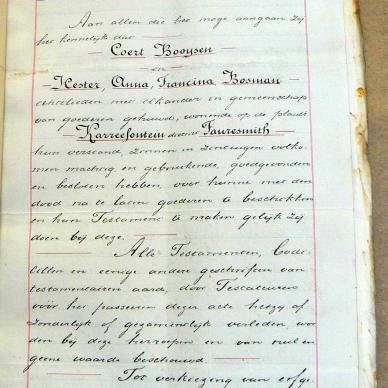 Aan allen die het moge aangaan zij
het kennelijk dat
Coert Booysen
en
Hester, Anna, Francina Bosman
echtelieden met elkander en gemeenschap
van goederen gehuwd, wonende op de plaats
Karreefontein district Fauresmith
hun verstand, zinnen en zeneuwen volko-
men machtig en gebruikende, goedgevonden
en besloten hebben, over hunne met den
dood na te laten goederen te beschikken
en hun Testament te maken gelijk zij
doen bij deze.
Alle Testamenten, Code-
cillen en eenige andere geschriften van
testamentairen aard, door Testateuren
vóór het passeeren dezer acte hetzij af-
zonderlijk of gezamenlijk verleden, wor-
den bij deze herroepen en van nul en
geene waarde beschouwd.
Tot verkiezing van erfge-